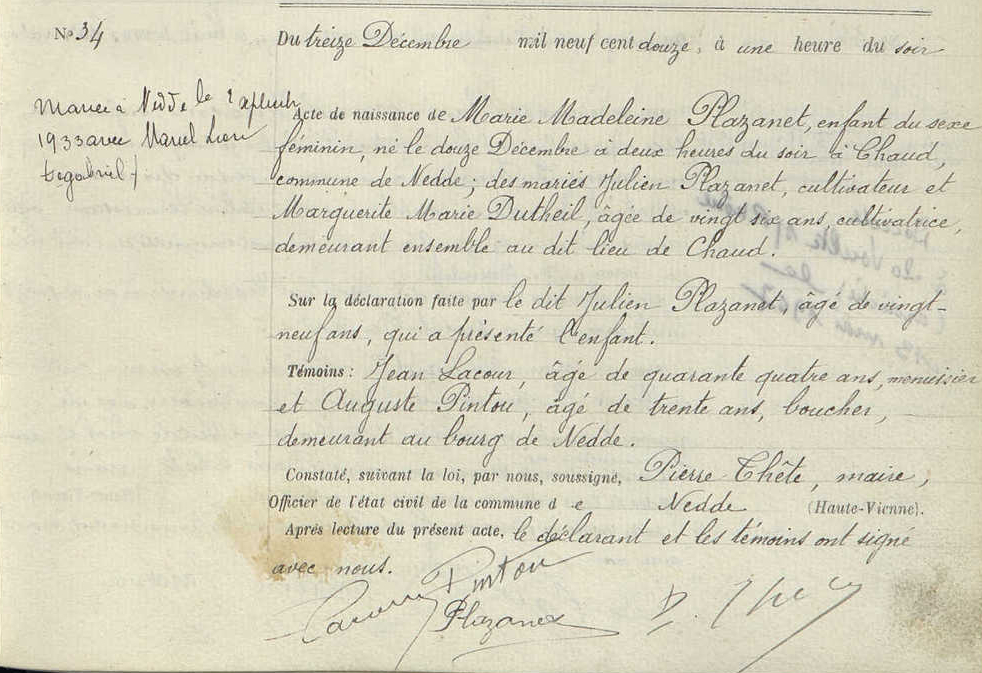 N° 34
Du treize Décembre mil neuf cent douze, à une heure du soir
Mariée à Nedde le 2
1933 avec Marcel Léon
Legabriel
Acte de naissance de Marie Madeleine Plazanet, enfant du sexe
féminin, né le douze Décembre à deux heures du soir à Chaud,
commune de Nedde; des mariés Julien Plazanet, cultivateur et
Marguerite Marie Dutheil, âgée de vingt six ans, cultivatrice,
demeurant ensemble au dit lieu de Chaud.
Sur la déclaration faite par le dit Julien Plazanet, âgé de vingt-
neuf ans, qui a présenté l'enfant.
Témoins: Jean Lacour, âgé de quarante quatre ans, menuisier
et Auguste Pintou, âgé de trente ans, boucher,
demeurant au bourg de Nedde.
Constaté, suivant la loi, par nous, soussigné, Pierre Thête, maire,
Officier de l'état civil de la commune de Nedde (Haute-Vienne).
Après lecture du présent acte, le déclarant et les témoins ont signé
avec nous.
Pintou
Lacour
Plazanet